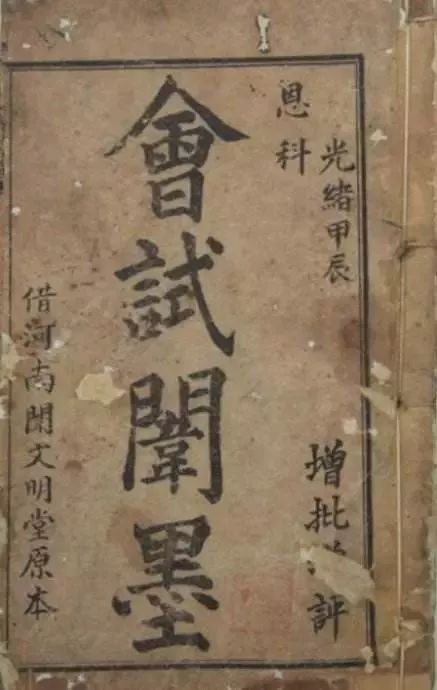 光緒甲辰
恩科
增批 評
會試闈墨
借河南闈文明堂原本